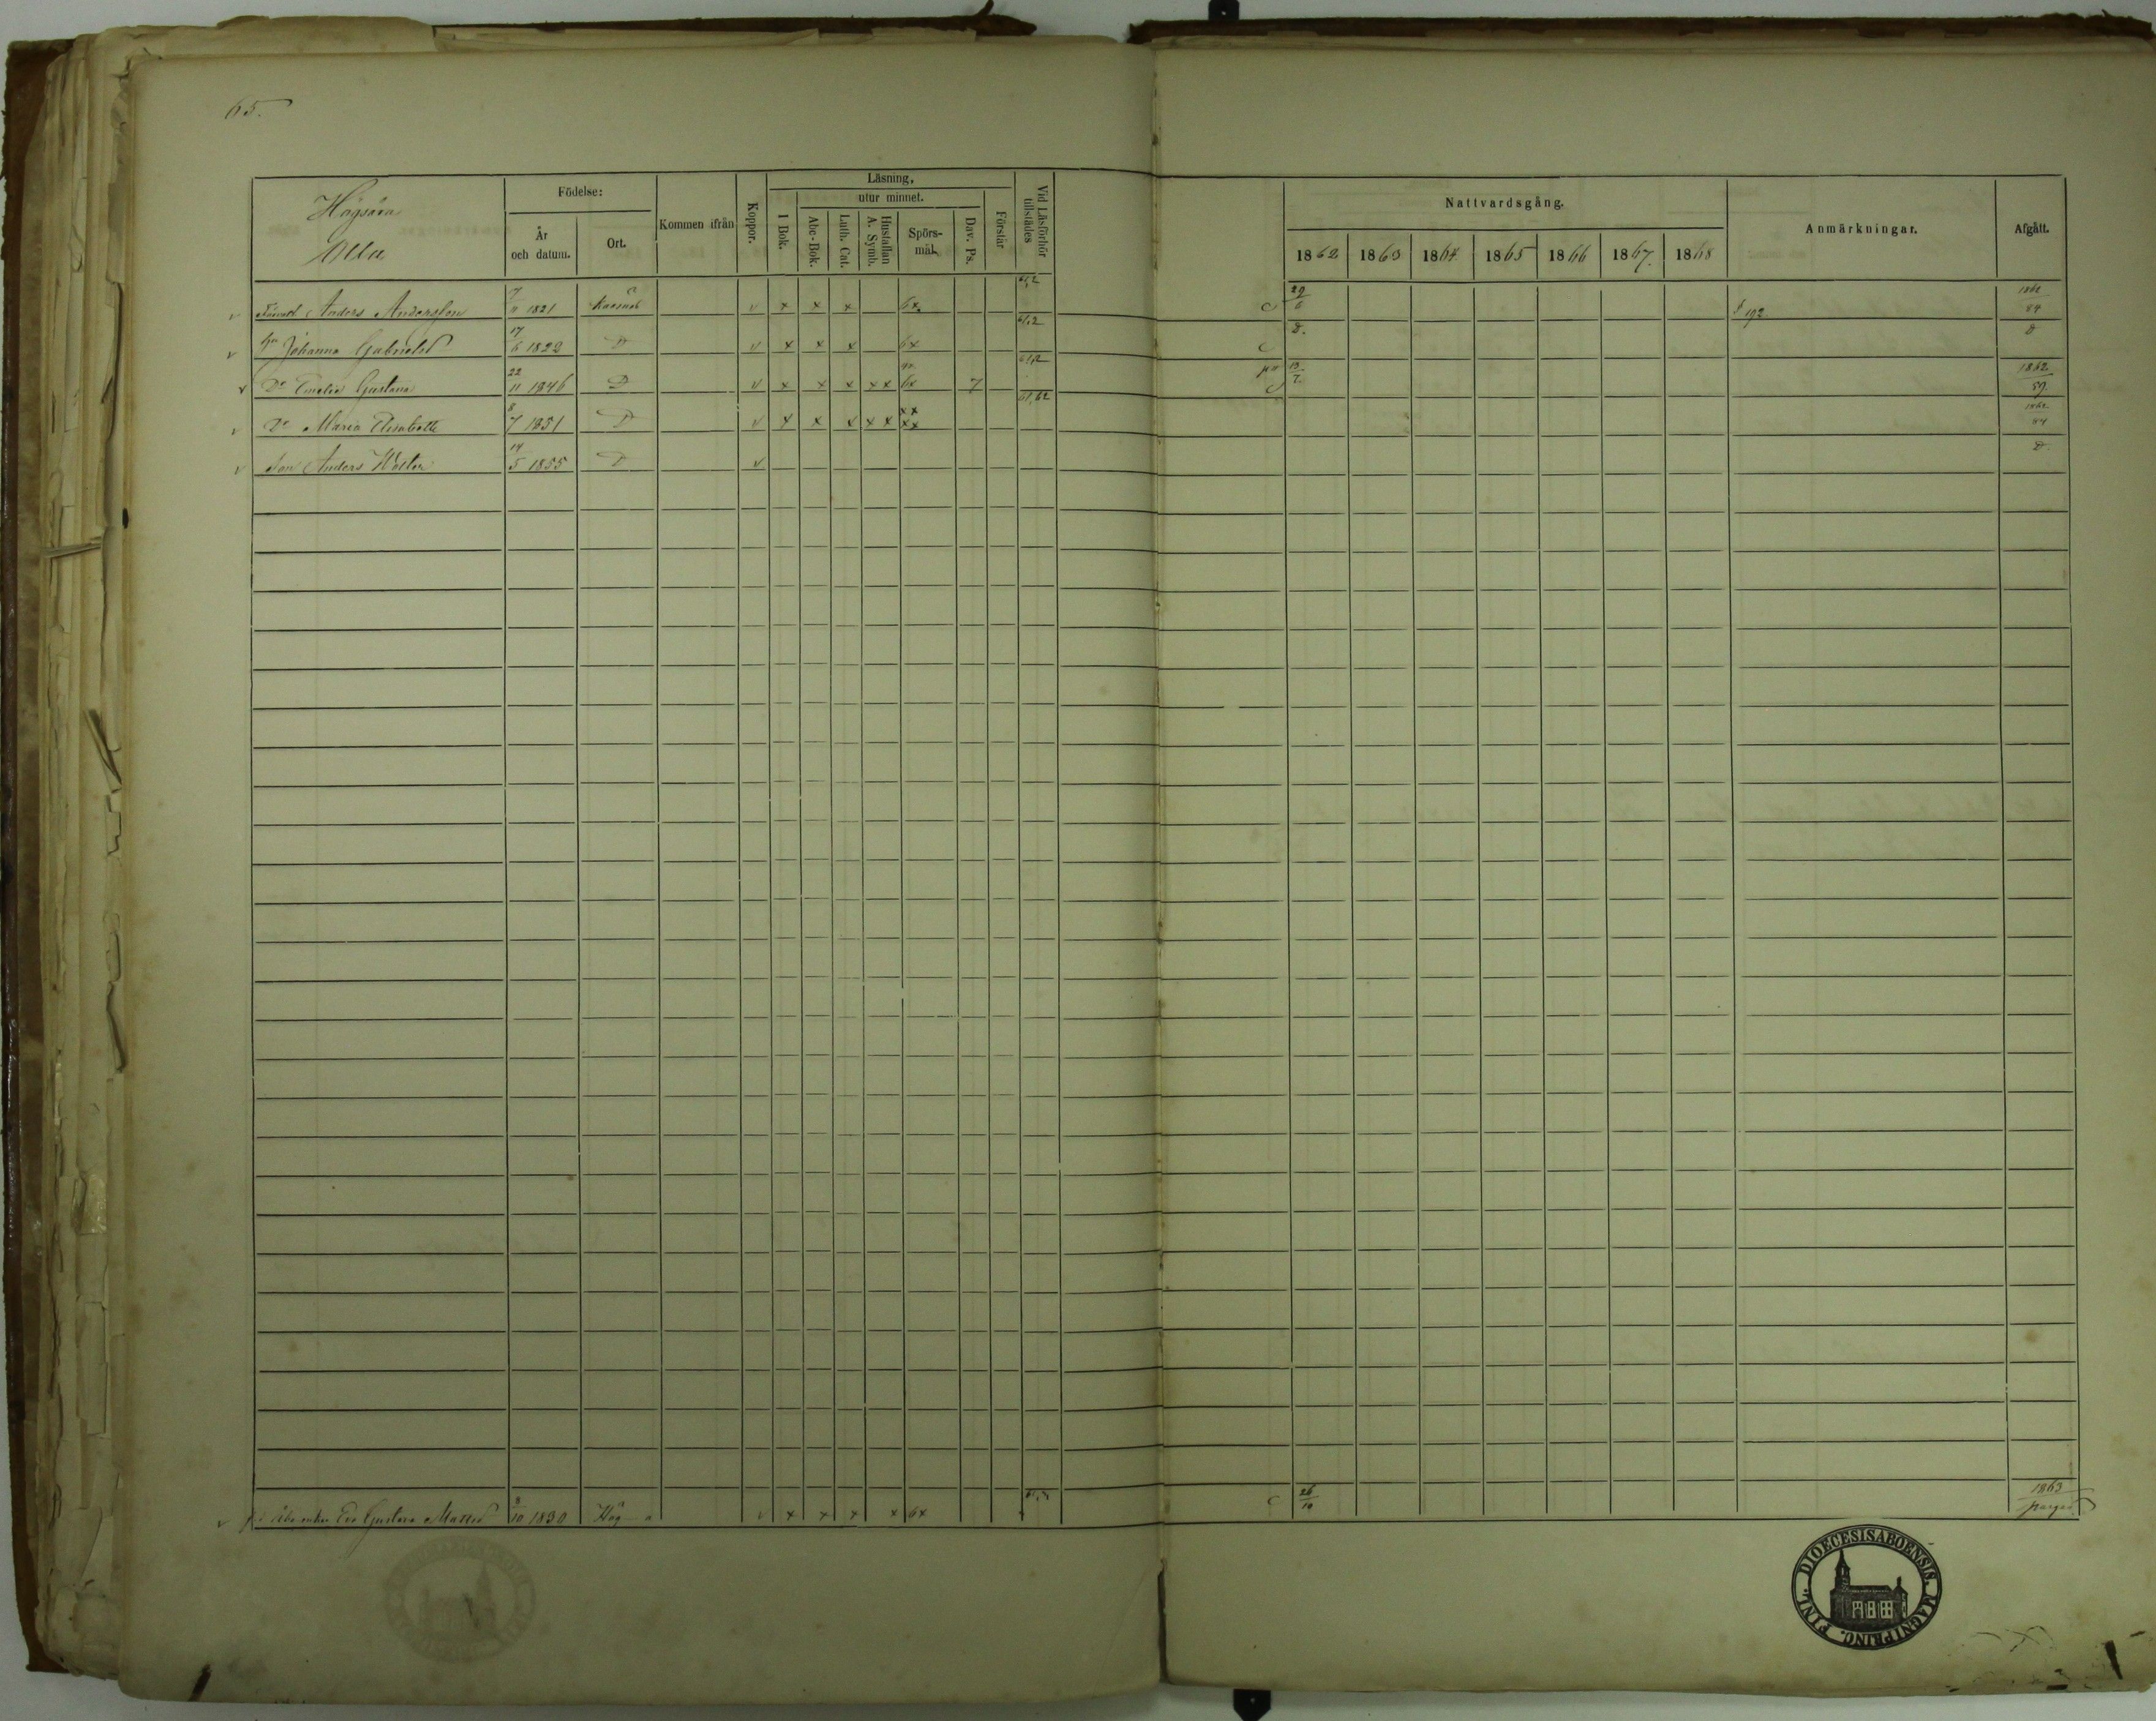 65.
Högsåra
Olla
Födelse:
År och datum.
Ort.
Kommen ifrån
Koppor.
Läsning,
I Bok.
utur minnet.
Abc-Bok.
Luth. Cat.
Hustaflan A. Symb.
Spörs-mål.
Dav. Ps.
Förstår
Vid Läsförhör tillstädes
Nattvardsgång.
1862 1863 1864 1865 1866 1867. 1868
Anmärkningar.
Afgått.
v Anders Andersson 7/11 1821 v x x x 6x 61,2 c 29/6 1862/84
v Hu Johanna Gabrielsd 17/6 1822 D v x x x 6x 61,2 c D. D
v Dr Emelie Gustava 22/11 1846 D v x x x x x 6x 7 61,2 c 13/7 1862/59.
v Dr Maria Elisabeth 8/7 1851 D v x x x x x x x x x 61,62 1862/84
v Son Anders Wolter 14/5 1855 D v D.
v Eva Gustava Mattsd 8/10 1830 Hög a v x x x x 6x c 26/10 1863/pargas
FINL. DIOECESIS ABOENSIS. MAGNI PRINC.